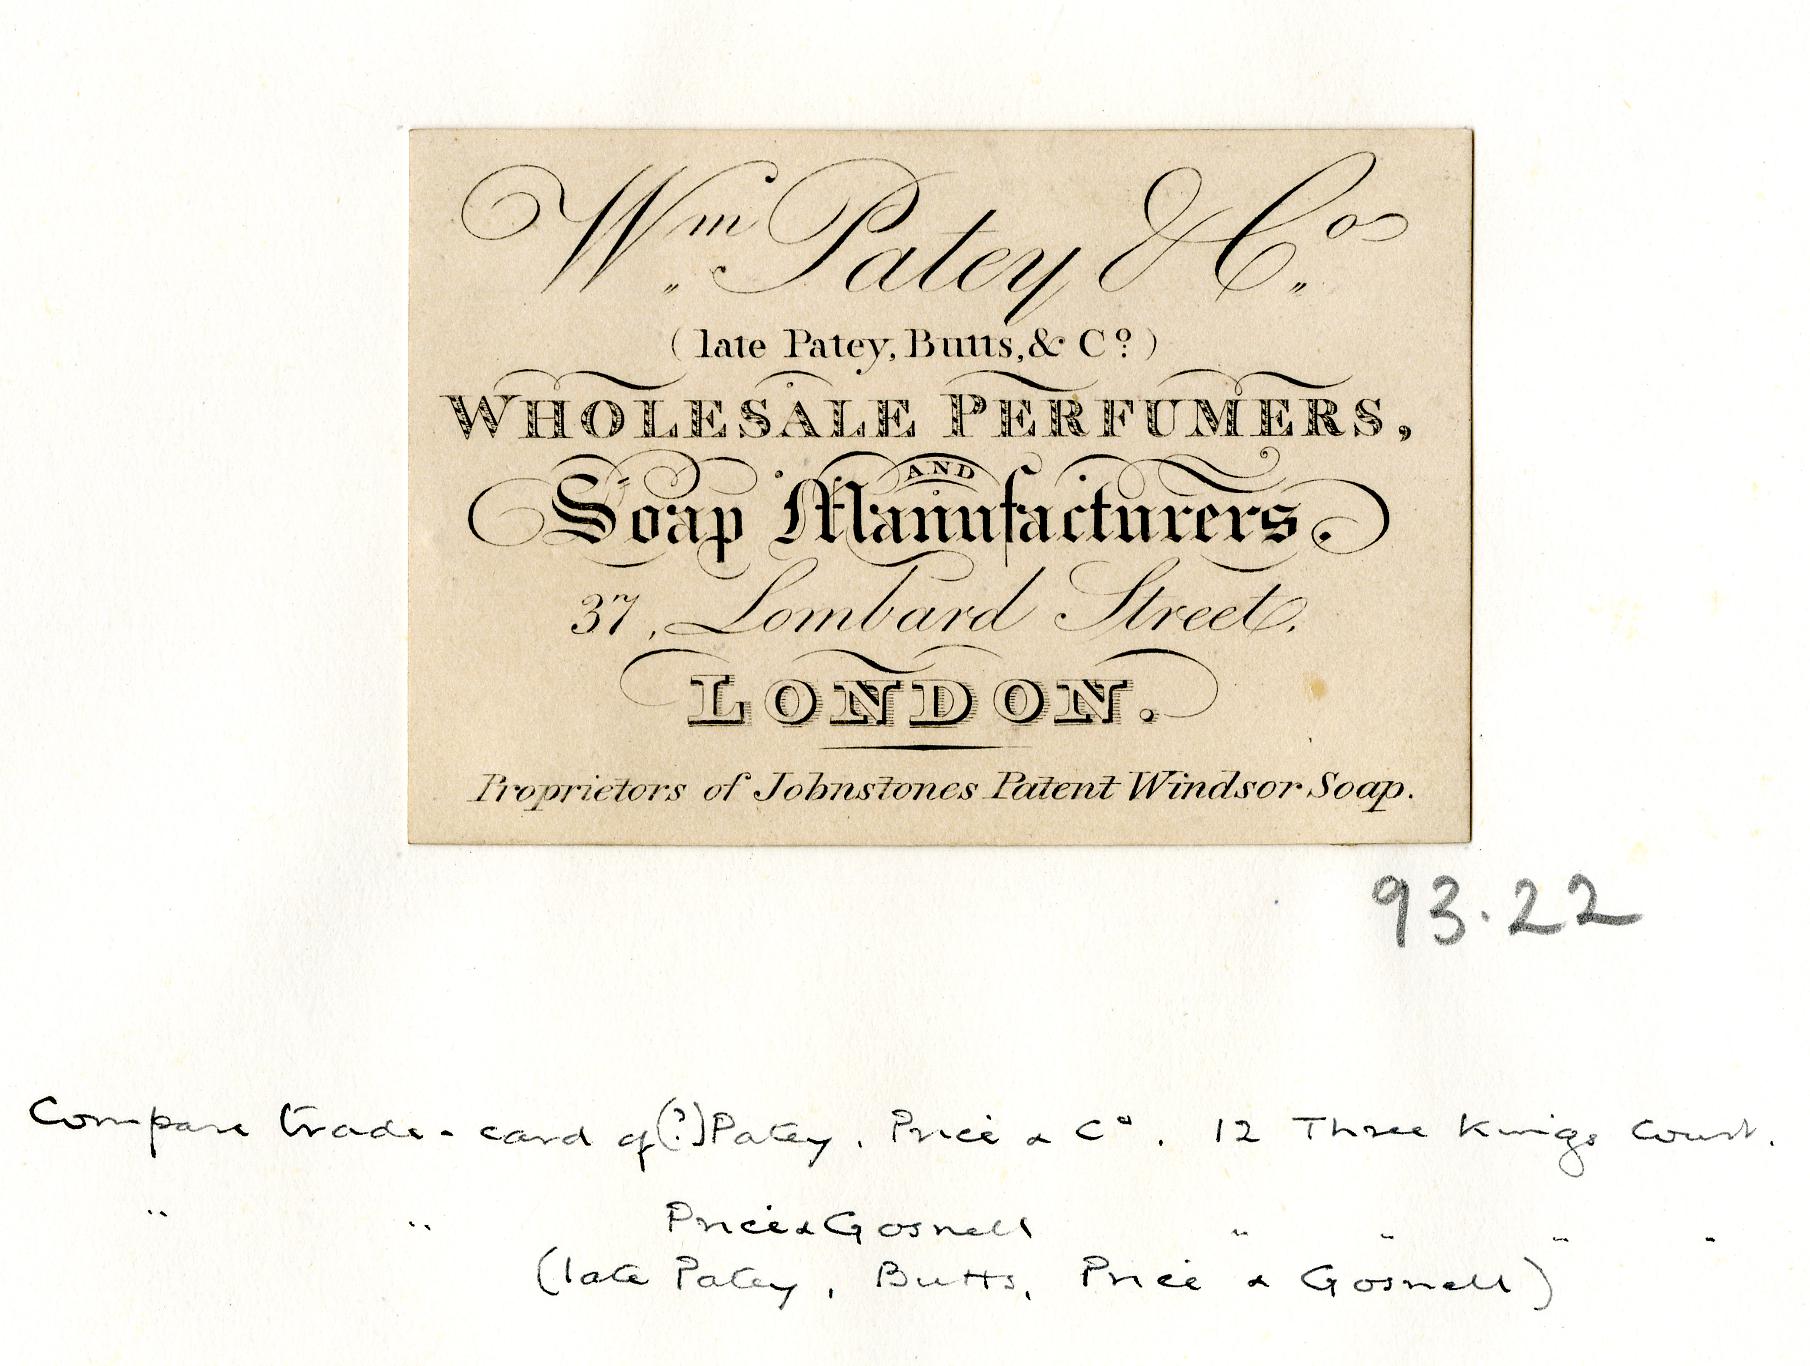 Wm Patey & Co
(late Patey, Butts, & Co.)
WHOLESALE PERFUMERS,
AND
Soap Manufacturers.
37, Lombard Street.
LONDON.
Proprietors of Johnstones Patent Windsor Soap.
93.22
Compare trade-card of (?) Patey, Price & Co. 12 Three Kings Court.
" " Price & Gosnell " " " "
(late Patey, Butts, Price & Gosnell)